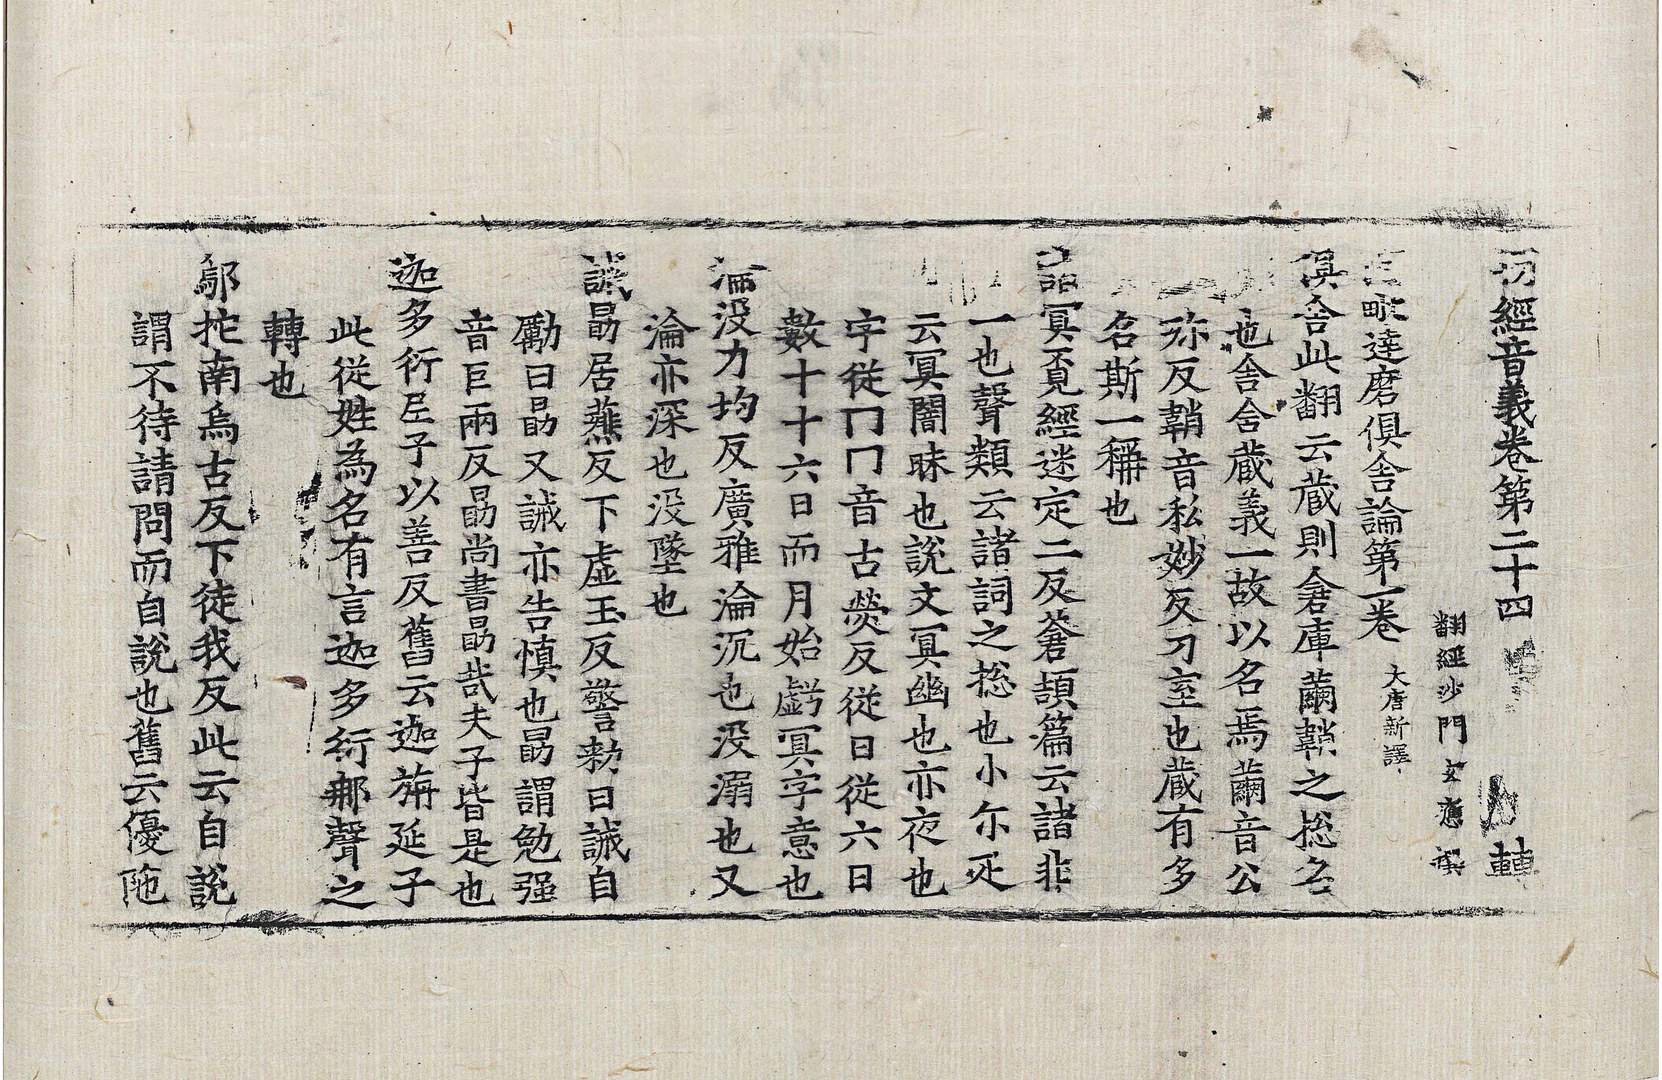 一切經音義卷第二十四 轉
翻經沙門玄應撰
阿毗達磨俱舍論第一卷 大唐新譯
俱舍此翻云藏則倉庫繭鞘之揔名
也舍舍藏義一故以名焉繭音公
殄反鞘音私妙反刀室也藏有多
名斯一稱也
諸冥覔經迷定二反蒼頡篇云諸非
一也聲類云諸詞之揔也小尓疋
云冥闇昧也說文冥幽也亦夜也
字從冂冂音古熒反從日從六日
數十十六日而月始虧冥字意也
淪没力均反廣雅淪沉也没溺也又
淪亦深也没墜也
誡勗居薦反下虛玉反警勑曰誡自
勵曰勗又誡亦告慎也勗謂勉强
音巨兩反勗尚書勗哉夫子皆是也
迦多衍尼子以善反舊云迦旃延子
此從姓為名有言迦多衍那聲之
轉也
鄔拕南烏古反下徒我反此云自說
謂不待請問而自說也舊云優陁